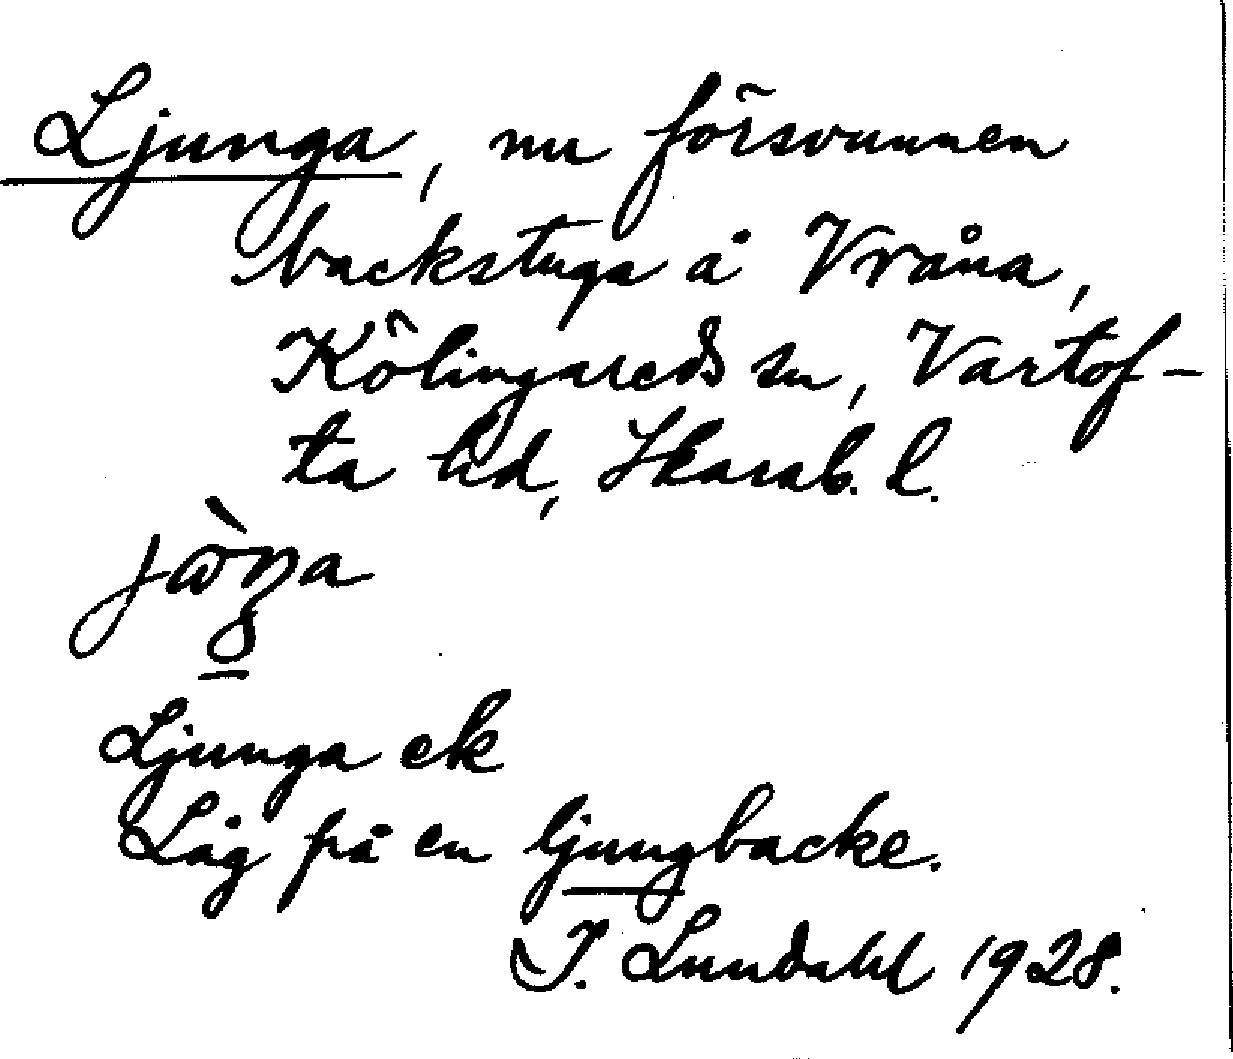 Ljunga, nu försvunnen
backstuga å Vråna,
Kölingareds sn, Vartof-
ta hd, Skarab. l.
Ljunga ek
Låg på en ljungbacke.
I. Lundahl 1928.